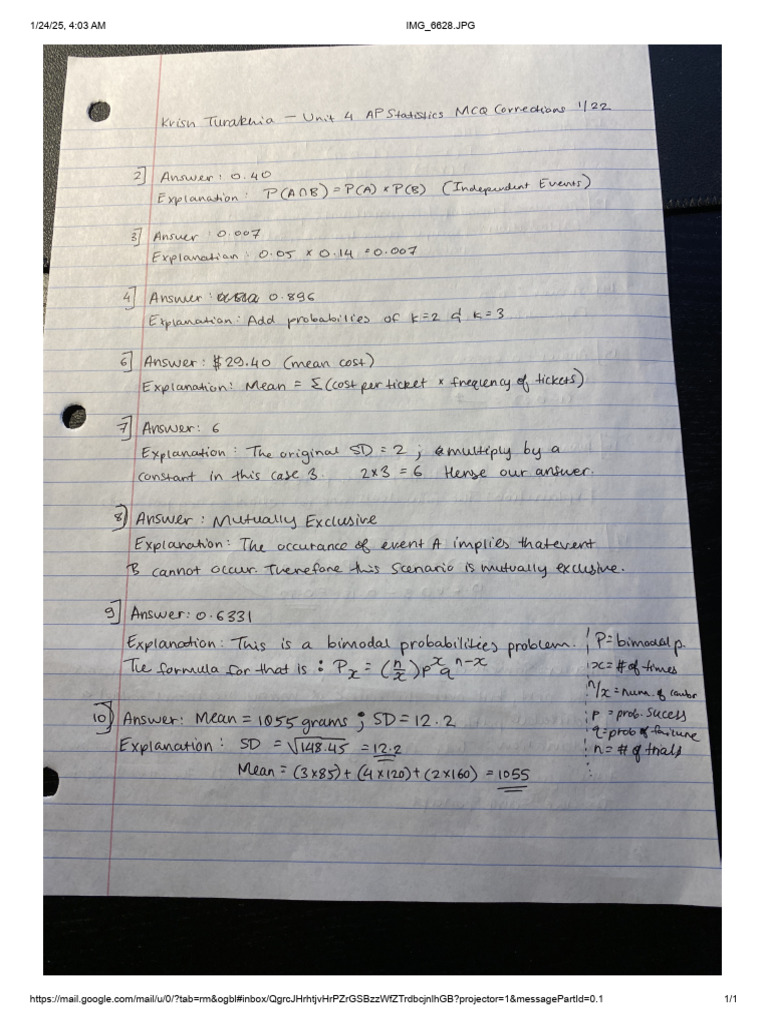 1/24/25, 4:03 AM IMG_6628.JPG
Krish Turakhia - Unit 4 AP Statistics MCQ Corrections 1/22
2] Answer: 0.40
Explanation: P(A∩B) = P(A) × P(B) (Independent Events)
3] Answer: 0.007
Explanation: 0.05 × 0.14 = 0.007
4] Answer: 0.896
Explanation: Add probabilies of k=2 & k=3
6] Answer: $29.40 (mean cost)
Explanation: Mean = Σ(cost per ticket × frequency of tickets)
7] Answer: 6
Explanation: The original SD = 2; multiply by a
constant in this case 3. 2×3 = 6 Hense our answer.
8] Answer: Mutually Exclusive
Explanation: The occurance of event A implies that event
B cannot occur. Therefore this scenario is mutually exclusive.
9] Answer: 0.6331
Explanation: This is a bimodal probabilities problem. P = bimodal p.
The formula for that is: Pₓ = (n/x) pˣ qⁿ⁻ˣ x = # of times
n/x = num. of
10] Answer: Mean = 1055 grams; SD = 12.2 p = prob. Sucess
Explanation: SD = √148.45 = 12.2 q = prob of failure
n = # of trials
Mean = (3×85) + (4×120) + (2×160) = 1055
https://mail.google.com/mail/u/0/?tab=rm&ogbl#inbox/QgrcJHrhtjvHrPZrGSBzzWfZTrdbcjnlhGB?projector=1&messagePartId=0.1 1/1